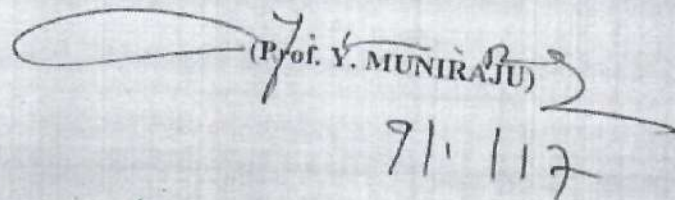 (Prof. Y. MUNIRAJU)
9/1/17